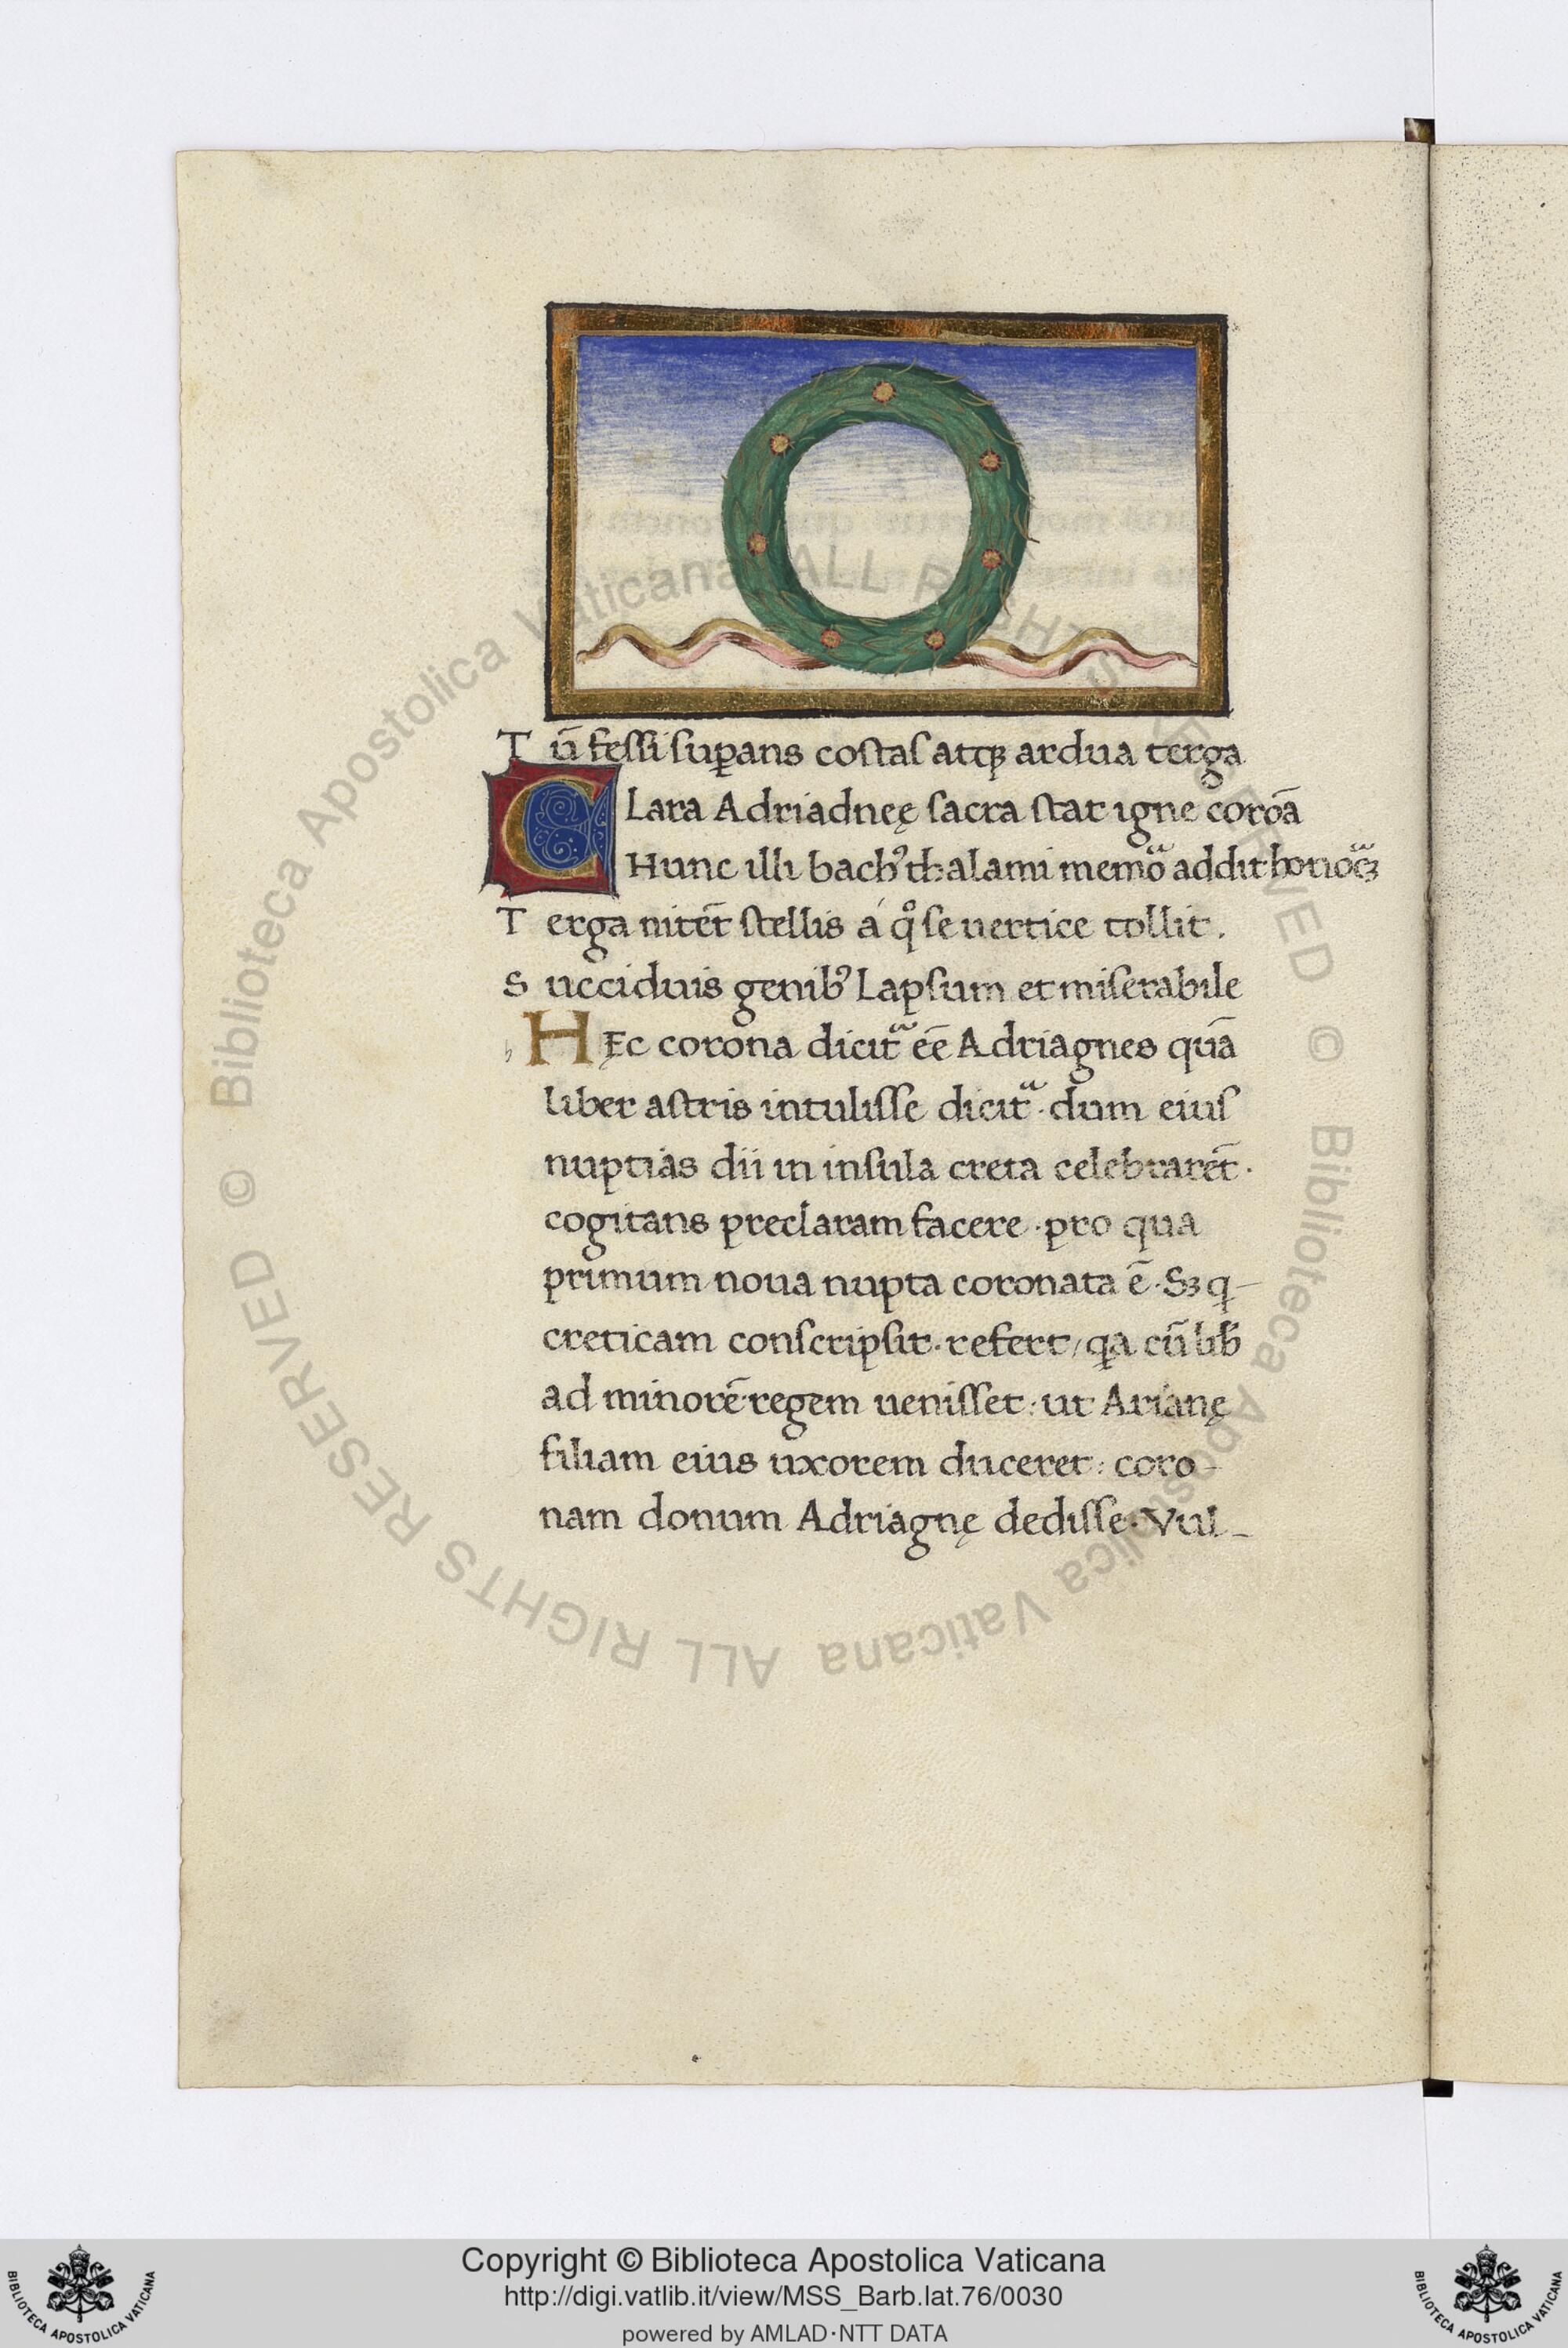 Tū feſſi ſuꝑans coſtaſ atqꝫ ardua terga
Clara Adriadneę ſacra ſtat igne coroā
Hunc illi bachꝰ thalami memoᷓ addit honoᷓꝫ
Terga nitēt ſtellis á qͦ ſe uertice tollit.
Succiduis genibꝰ Lapſum et miſerabile
Hęc corona dicitᷓ eē Adriagnes quā
liber aſtris intuliſſe dicitᷓ · dum eiuſ
nuptias dii in inſula creta celebrarēt ·
cogitans preclaram facere · pro qua
primum noua nupta coronata ē · Sꝫ q–
creticam conſcripſit · refert / qa cū lib̄
ad minorē regem ueniſſet : ut Arianę
filiam eius uxorem duceret : coro–
nam donum Adriagnę dediſſe · Vul–
© Biblioteca Apostolica Vaticana ALL RIGHTS RESERVED © Biblioteca Apostolica Vaticana ALL RIGHTS RESERVED
Copyright © Biblioteca Apostolica Vaticana
http://digi.vatlib.it/view/MSS_Barb.lat.76/0030
powered by AMLAD·NTT DATA
BIBLIOTECA APOSTOLICA VATICANA
BIBLIOTECA APOSTOLICA VATICANA